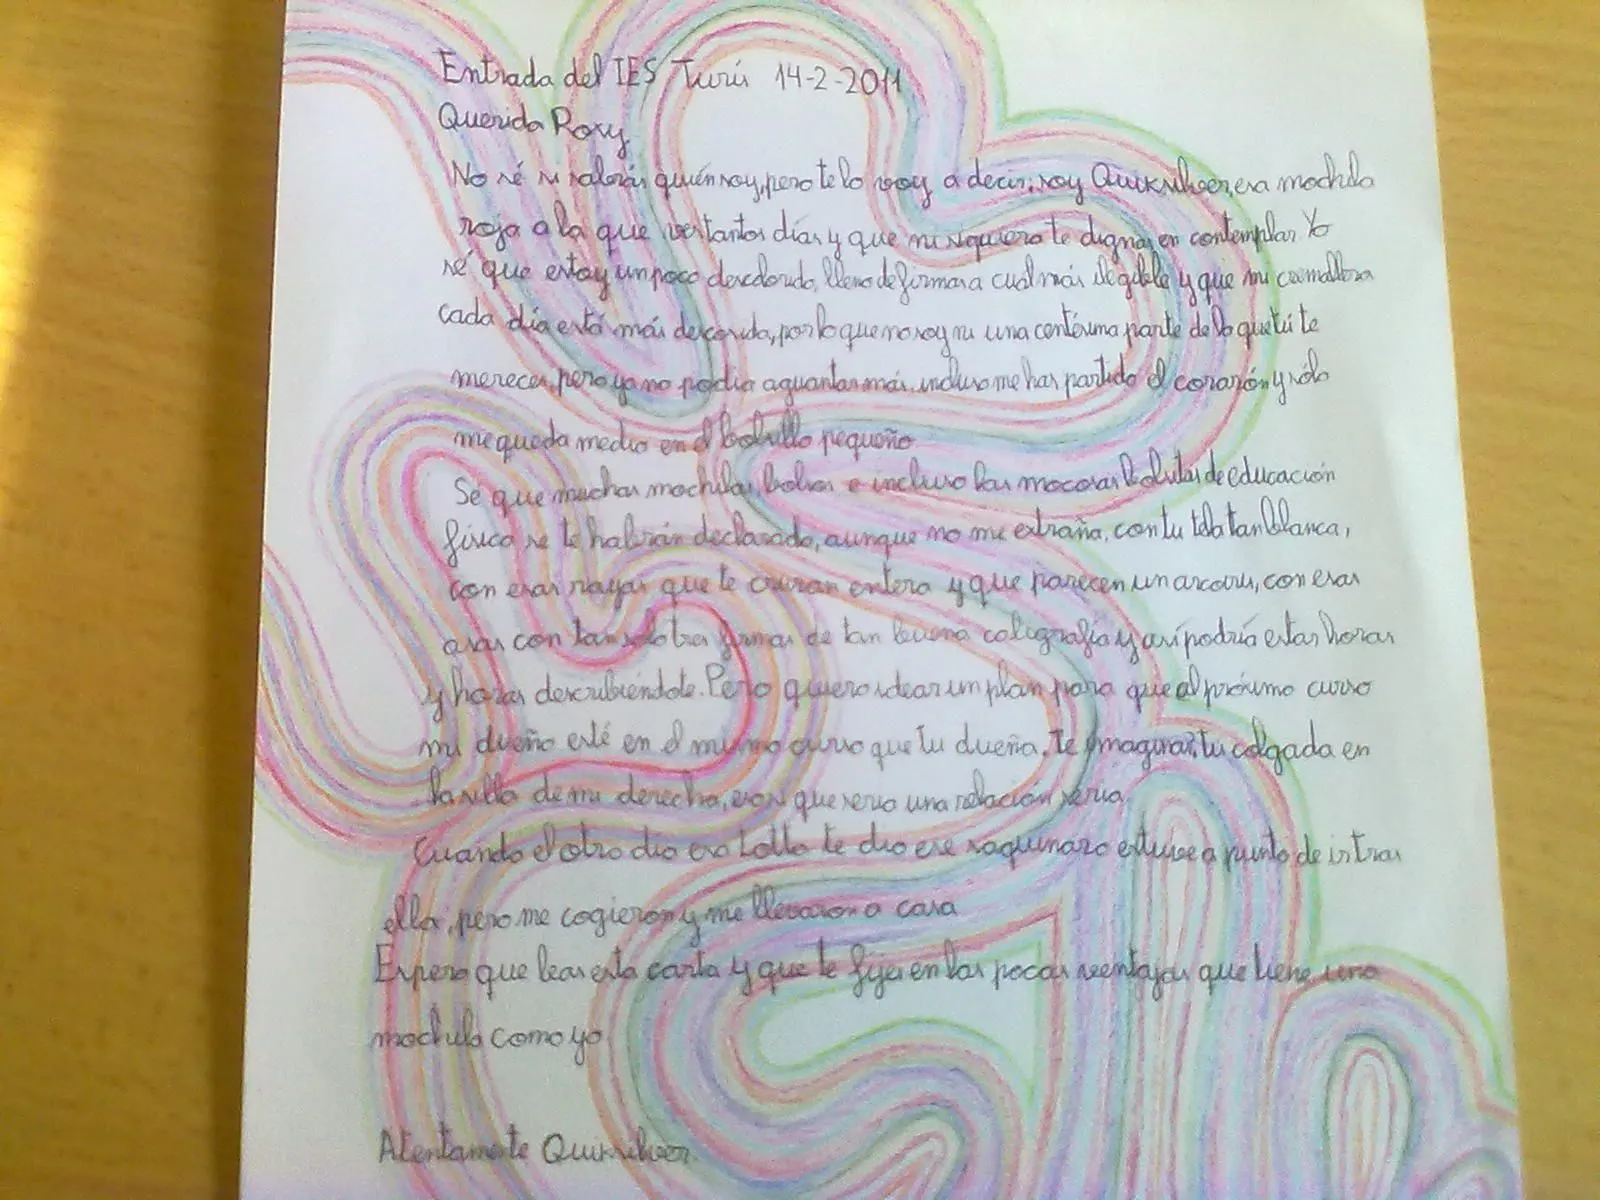 Entrada del IES Turís 14-2-2011
Querida Roxy
No sé si sabrás quién soy, pero te lo voy a decir, soy Quiksilver, esa mochila
roja a la que ves tantos días y que ni siquiera te dignas en contemplar. Yo
sé que estoy un poco descolorido, lleno de firmas a cual más ilegible y que mi cremallera
cada día está más descosida, por lo que no soy ni una centésima parte de lo que tú te
mereces, pero ya no podía aguantar más, incluso me has partido el corazón y sólo
me queda medio en el bolsillo pequeño
Sé que muchas mochilas, bolsos e incluso las mocosas bolsitas de educación
física se te habrán declarado, aunque no me extraña, con tu tela tan blanca,
con esas rayas que te cruzan entera y que parecen un arcoiris, con esas
asas con tan solo tres firmas de tan buena caligrafía y así podría estar horas
y horas describiéndote. Pero quiero idear un plan para que al próximo curso
mi dueño esté en el mismo curso que tu dueña, te imaginas, tu colgada en
la silla de mi derecha, eso si que sería una relación seria.
Cuando el otro día esa Lotto te dio ese raquinazo estuve a punto de ir tras
ella, pero me cogieron y me llevaron a casa
Espero que leas esta carta y que te fijes en las pocas ventajas que tiene una
mochila como yo
Atentamente Quiksilver.